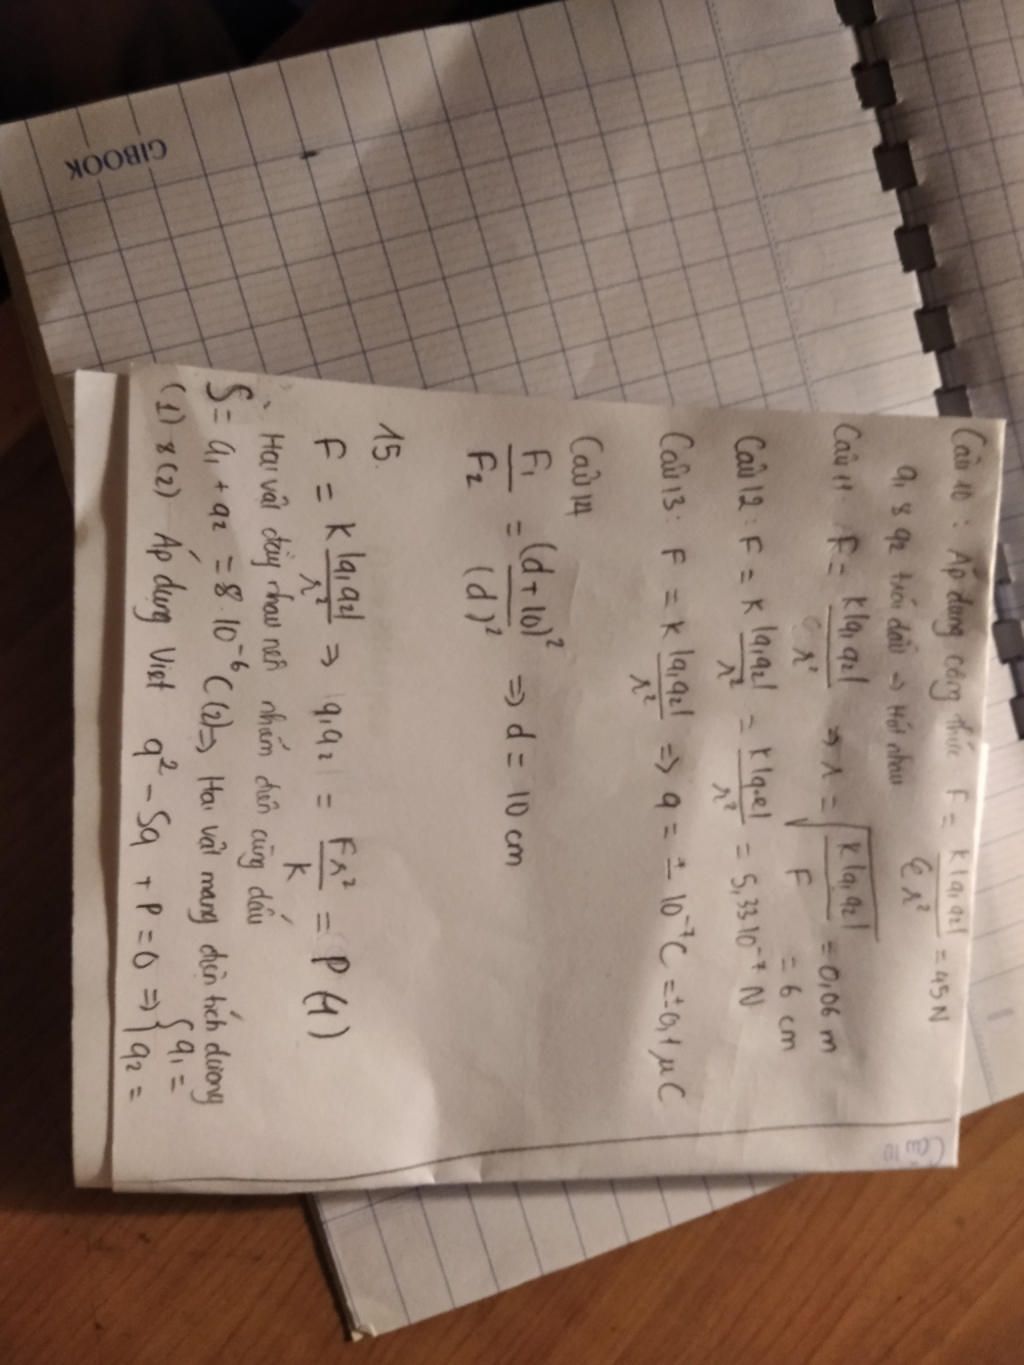 GIBOOK
Câu 10 : Áp dụng công thức F = K|q₁q₂| / εr² = 45N
q₁ & q₂ trái dấu => Hút nhau
Câu 11 F = K|q₁q₂| / r² => r = √(K|q₁q₂| / F) = 0,06 m
= 6 cm
Câu 12 : F = K |q₁q₂| / r² = K|q.e| / r² = 5,33 10⁻⁷ N
Câu 13 : F = K |q₁q₂| / r² => q = ± 10⁻⁷C = ± 0,1 μC
Câu 14
F₁ / F₂ = (d + 10)² / (d)² => d = 10 cm
15.
F = K |q₁q₂| / r² => |q₁q₂| = Fr² / K = P (1)
Hai vật đẩy nhau nên nhiễm điện cùng dấu
S = q₁ + q₂ = 8.10⁻⁶ C (2) => Hai vật mang điện tích dương
(1) & (2) Áp dụng Viet q² - Sq + P = 0 => { q₁ =
q₂ =